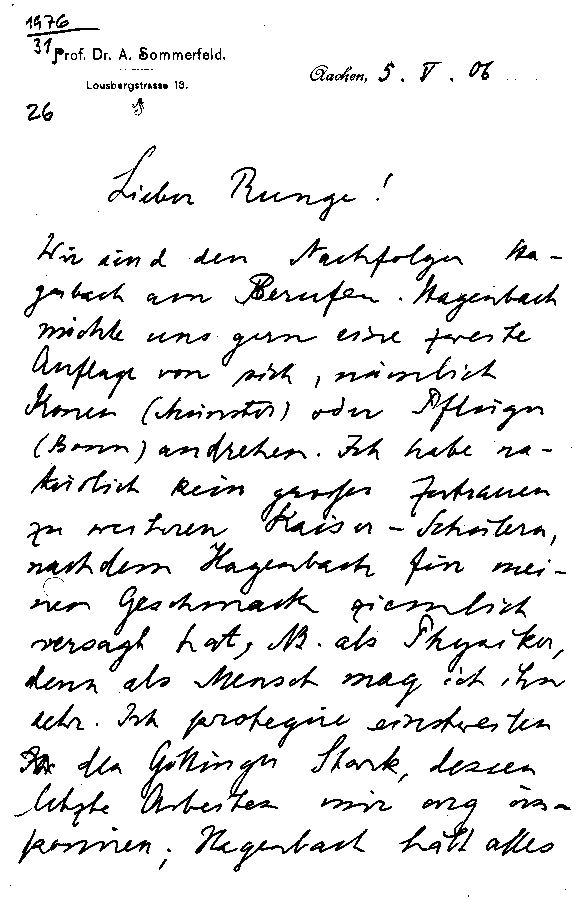 1976
31
Prof. Dr. A. Sommerfeld.
Lousbergstrasse 13.
Aachen, 5. V. 06
26
Lieber Runge!
Wir sind den Nachfolger Ha-
genbach am Berufen. Hagenbach
möchte uns gern eine zweite
Auflage von sich, nämlich
Konen (Münster) oder Pflüger
(Bonn) andrehen. Ich habe na-
türlich kein grosses Zutrauen
zu weiteren Kaiser-Schülern,
nachdem Hagenbach für mei-
nen Geschmack ziemlich
versagt hat, NB. als Physiker,
denn als Mensch mag ich ihn
sehr. Ich protegire einstweilen
den Göttinger Stark, dessen
letzte Arbeiten mir arg im-
poniren; Hagenbach hält alles